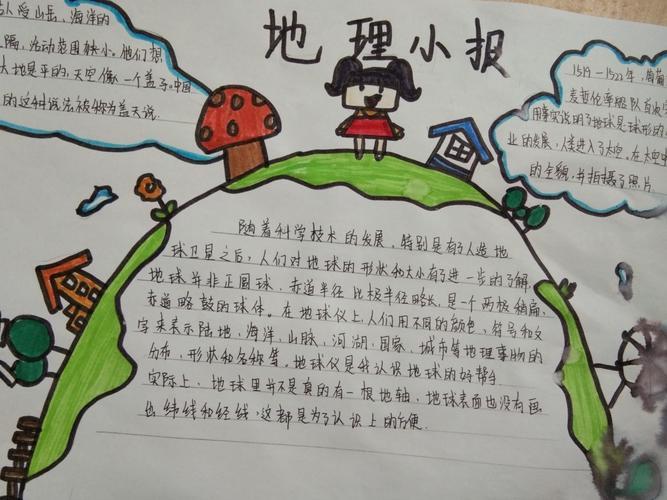 地理小报
人受山岳、海洋的
隔,活动范围狭小。他们想
大地是平的,天空像一个盖子。中国
的这种说法被称为盖天说.
1519—1522年,葡萄
麦哲伦率船队首次
用事实说明了地球是球形的
业的发展,人类进入了太空。在太空
的全貌,并拍摄了照片.
随着科学技术的发展,特别是有了人造地
球卫星之后,人们对地球的形状和大小有了进一步的了解,
地球并非正圆球,赤道半径比极半径略长,是一个两极稍扁,
赤道略鼓的球体。在地球仪上,人们用不同的颜色、符号和文
字来表示陆地,海洋,山脉,河湖,国家,城市等地理事物的
分布,形状和名称等。地球仪是我认识地球的好帮手
实际上,地球里并不是真的有一根地轴,地球表面也没有画
出纬线和经线,这都是为了认识上的方便.